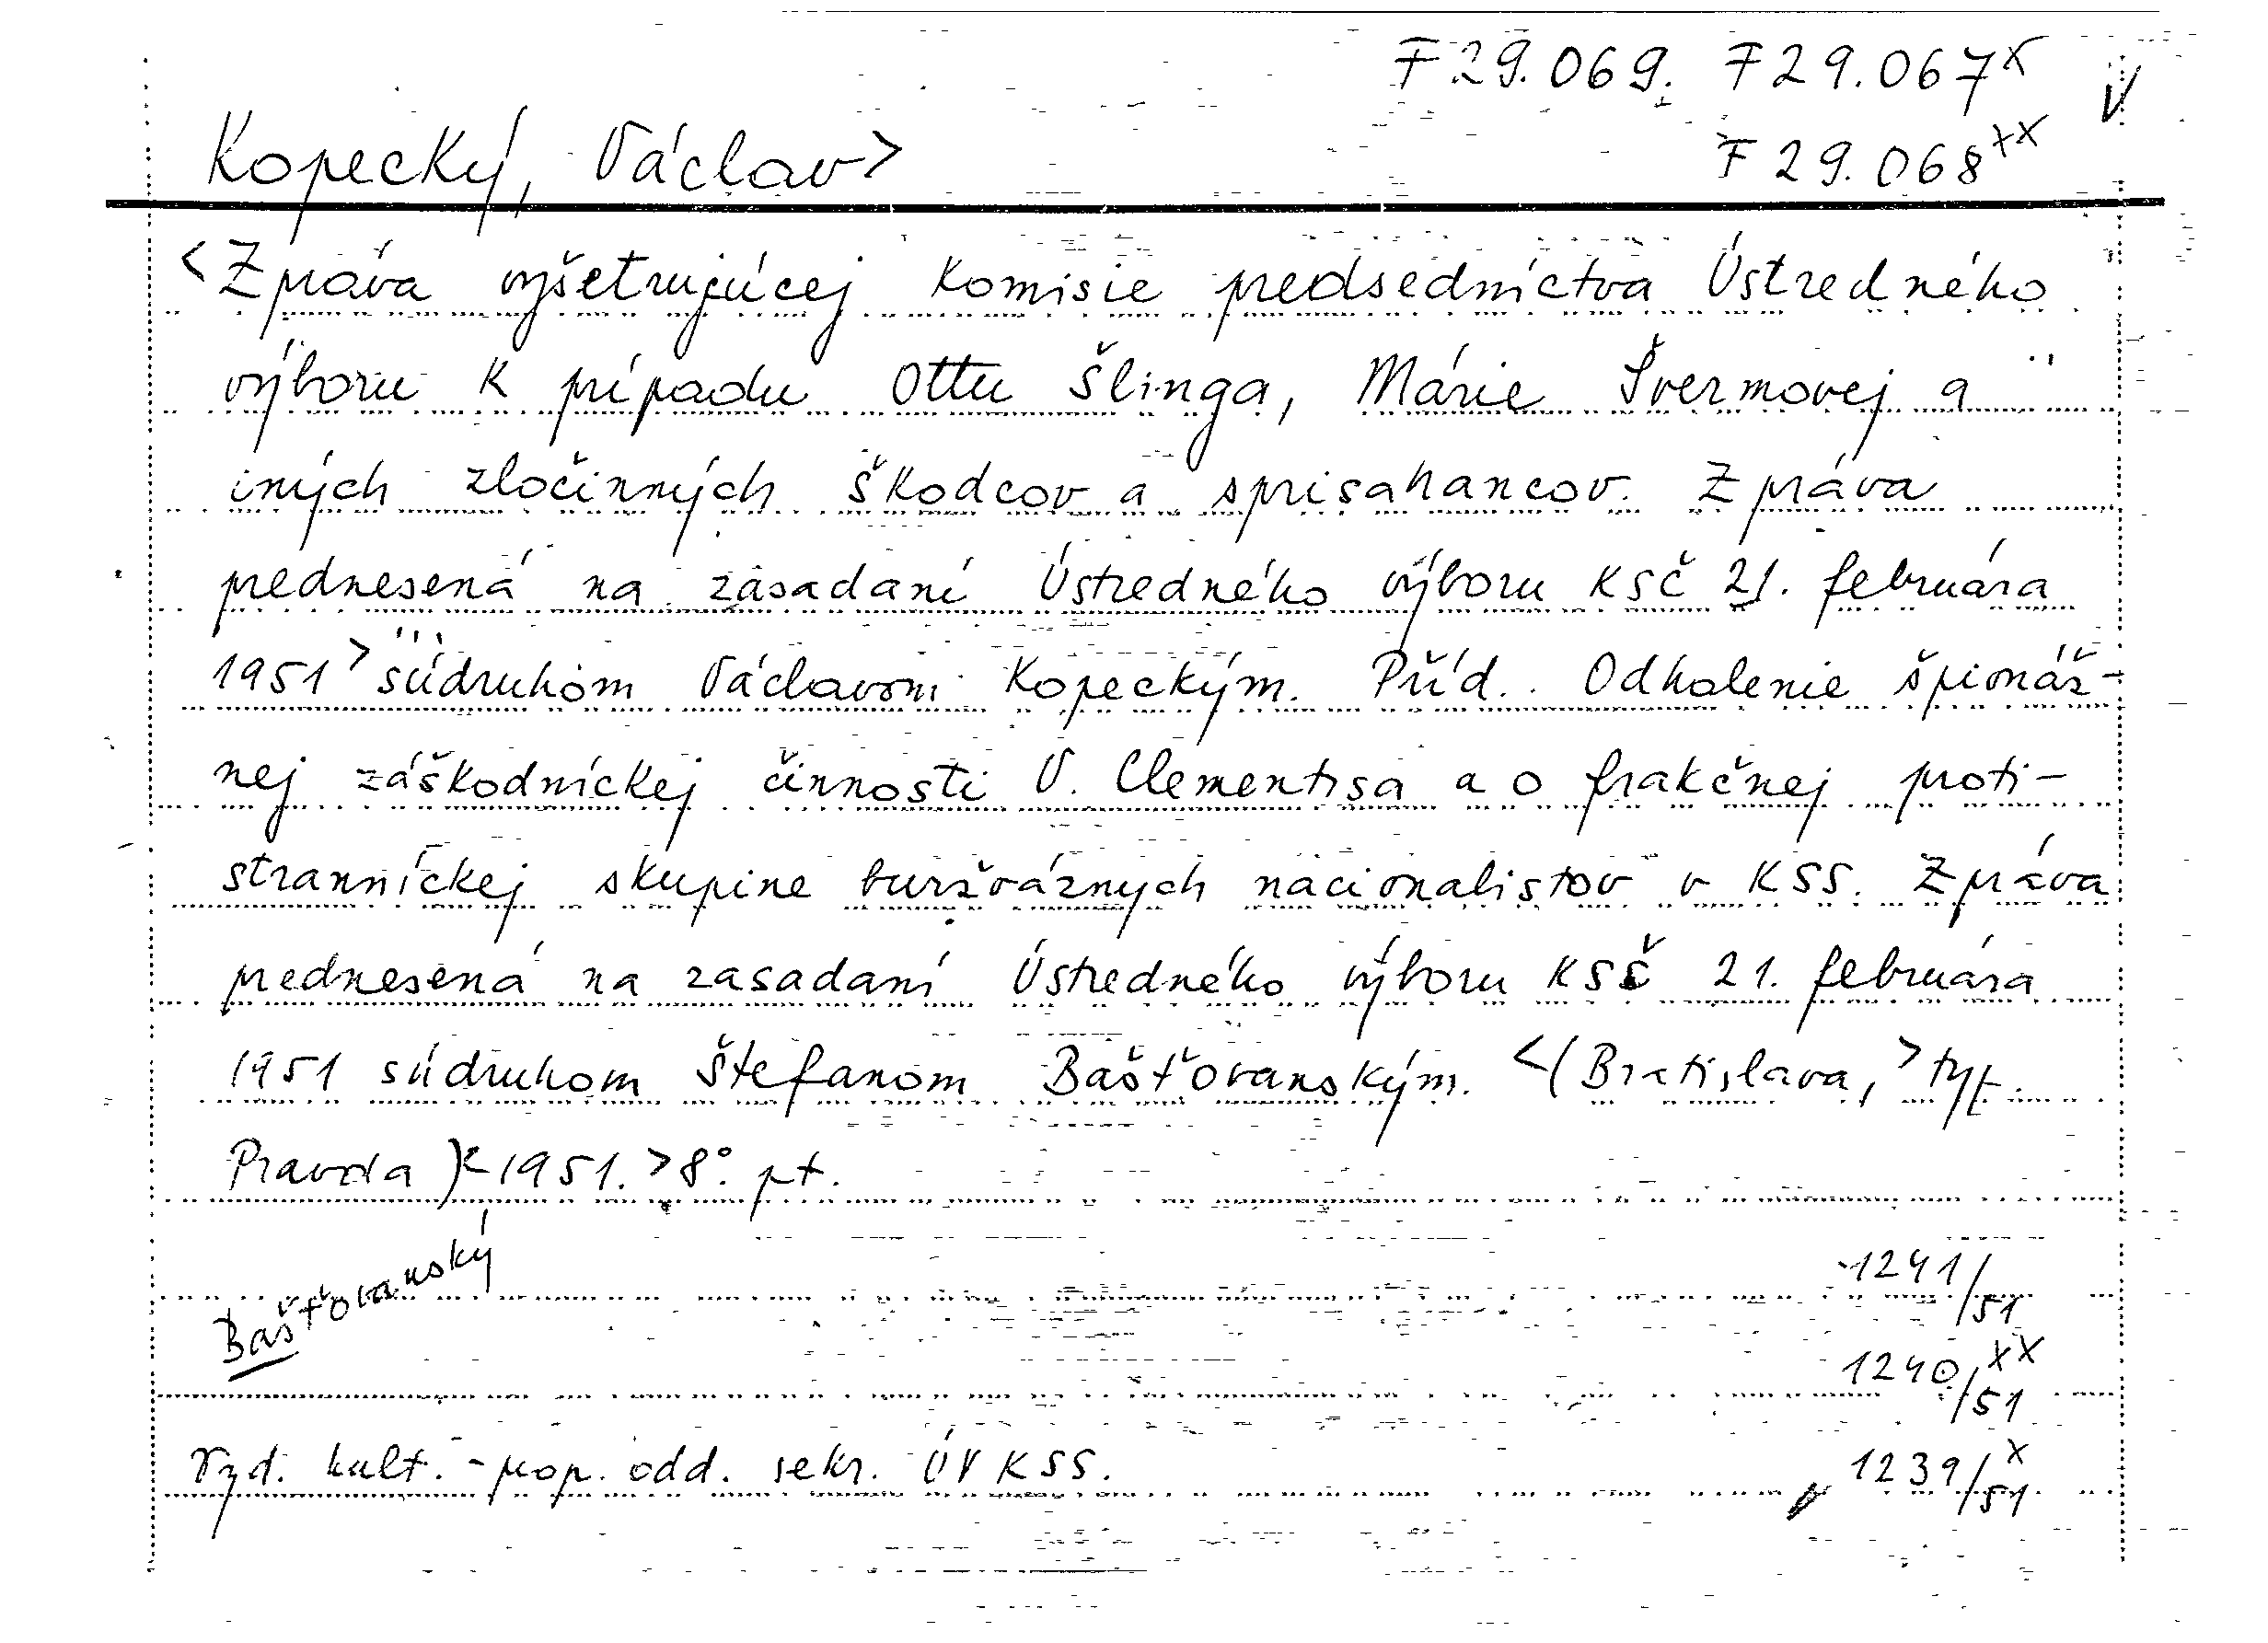 F 29.069. F 29.067x
Kopecký, Václav> F 29.068xx
<Zpráva vyšetrujúcej komisie predsedníctva Ústredného
výboru k prípadu Ottu Šlinga, Márie Švermovej a
iných zločinných škodcov a sprisahancov. Zpráva
prednesená na zasadaní Ústredného výboru KSČ 21. februára
1951> súdruhom Václavom Kopeckým. Příd. Odhalenie špionáž-
nej záškodníckej činnosti V. Clementisa a o frakčnej proti-
stranníckej skupine buržoáznych nacionalistov v KSS. Zpráva
prednesená na zasadaní Ústredného výboru KSČ 21. februára
1951 súdruhom Štefanom Bašťovanským. <(Bratislava,> typ.
Pravda)<1951.>8°. pt.
Bašťovanský
1241/51
1240/51 xx
Vyd. kult.-prop. odd. sekr. ÚV KSS. 1239/51 x